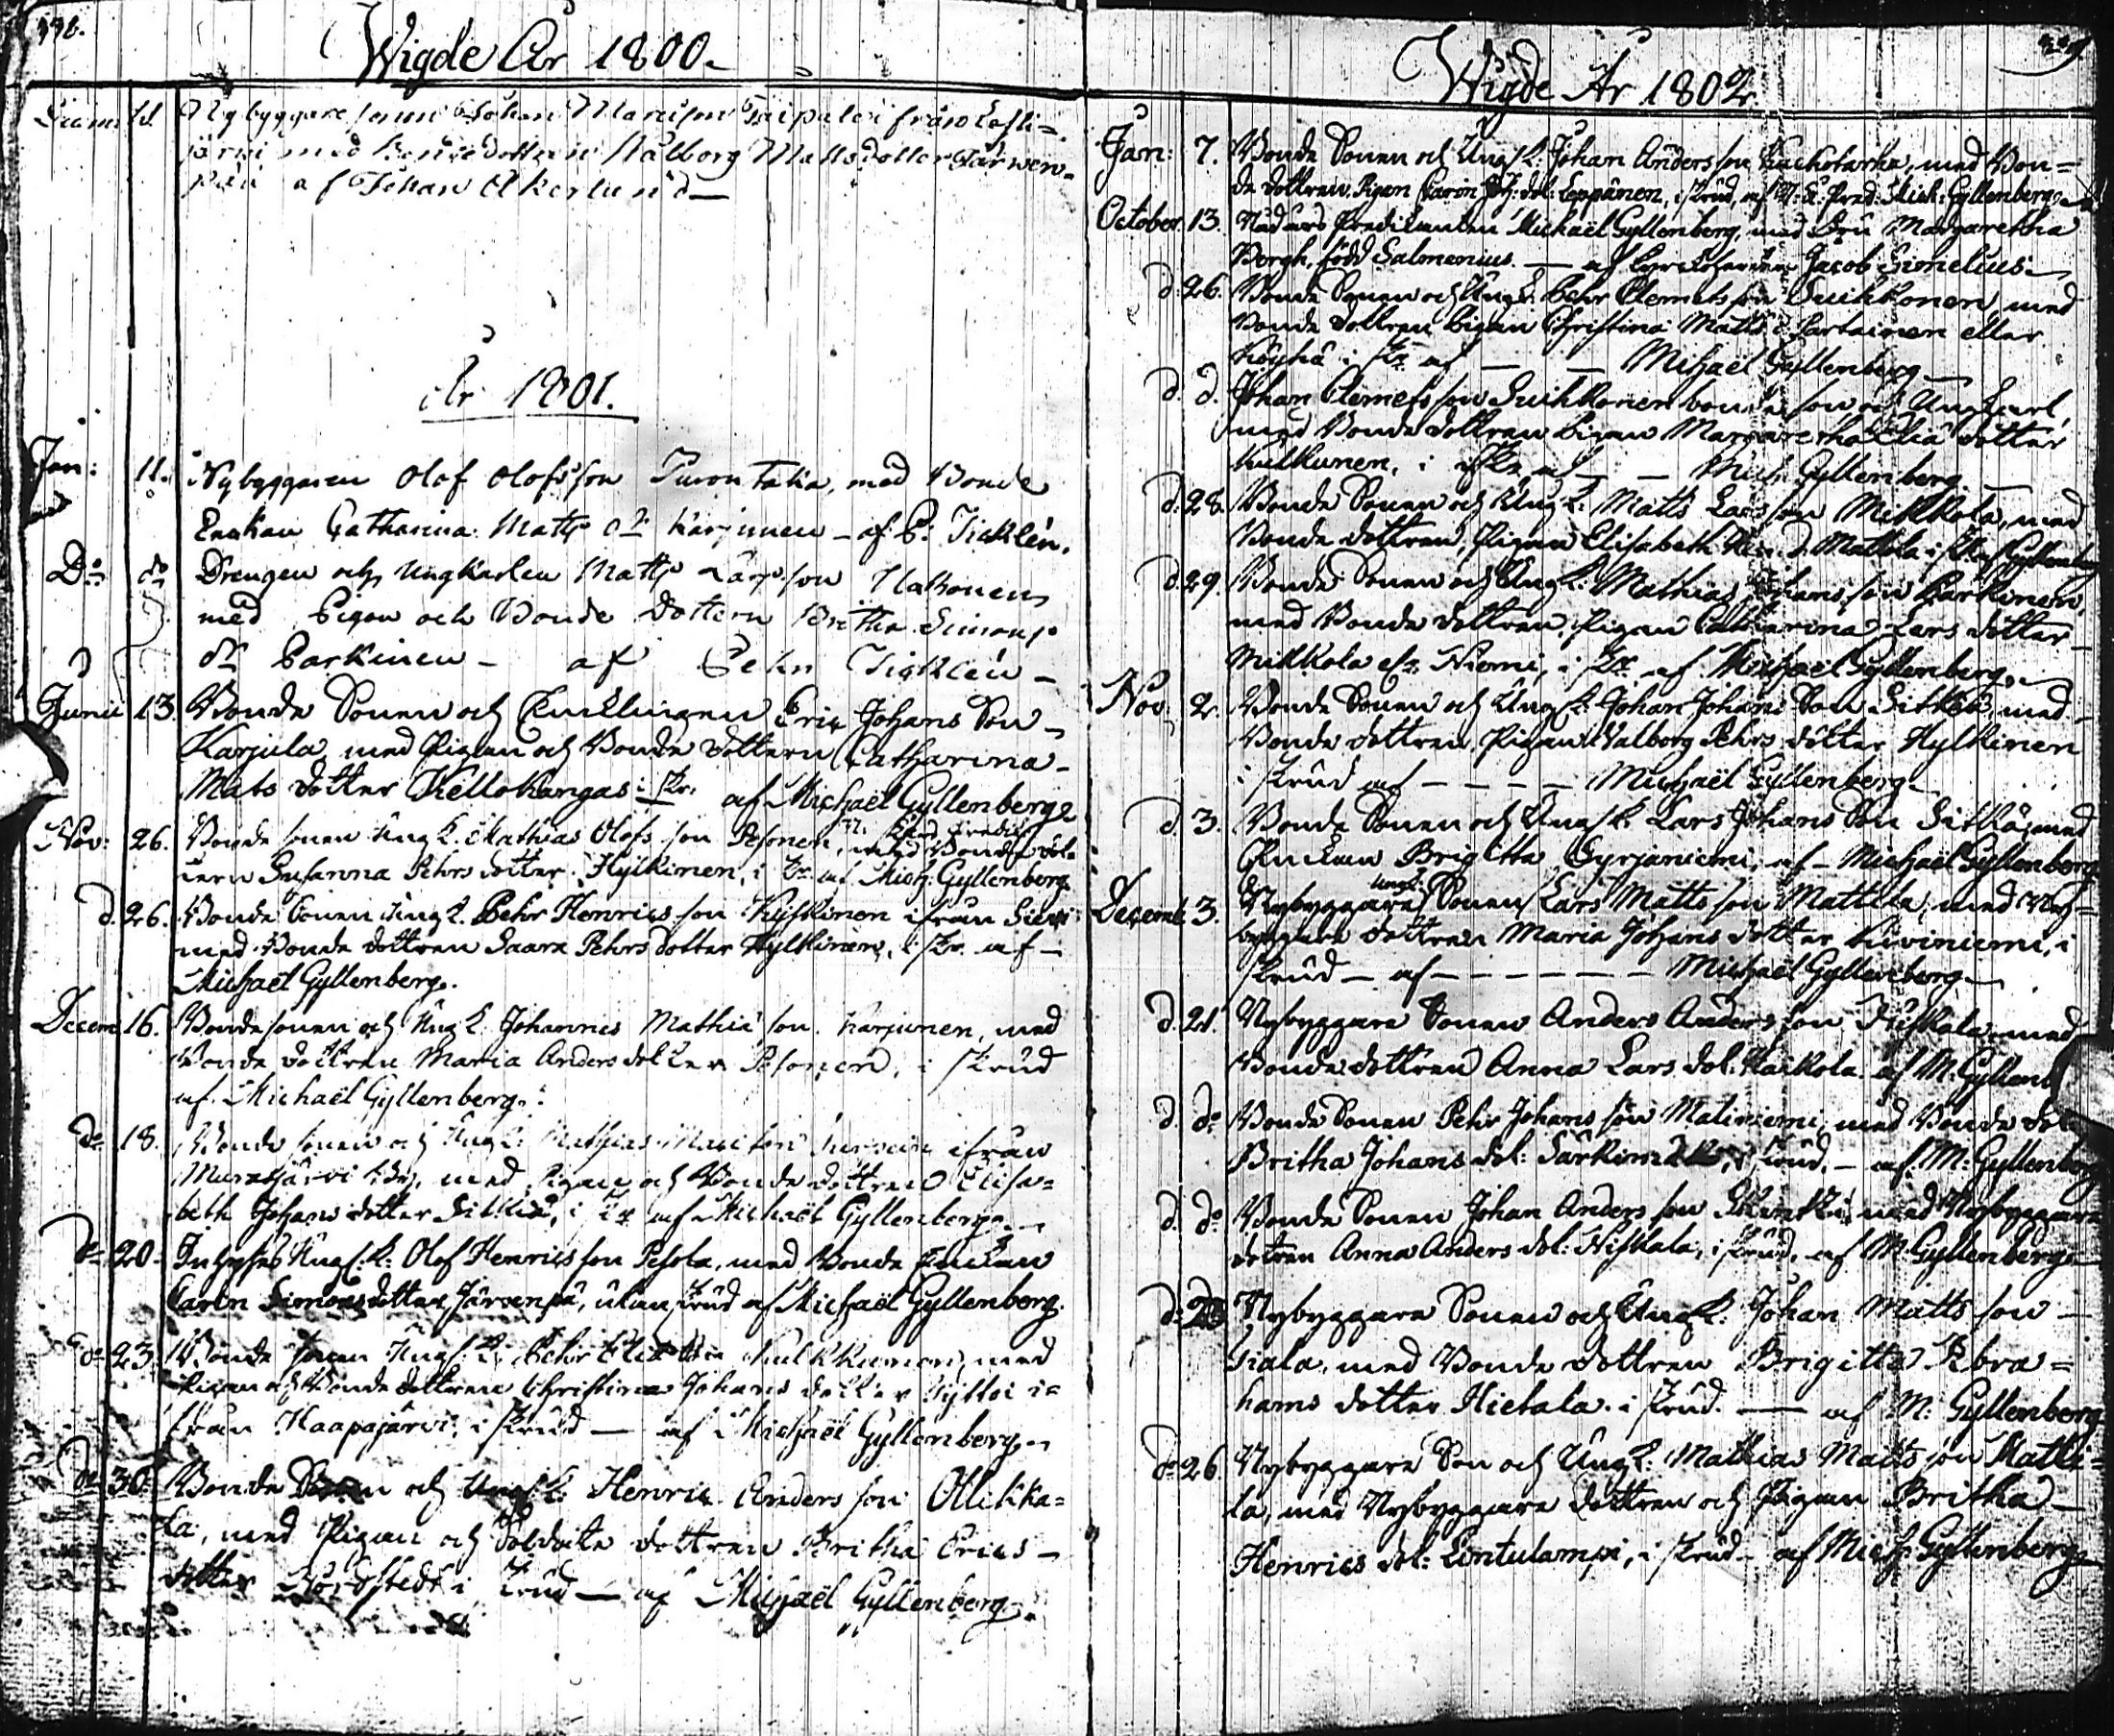 Wigde År 1800.
11 Nybyggare sonen Johan Taipalen från Lesti=
järvi med Bondedottren Walborg Mattsdotter Järwen=
pää af Johan Åkerlund —
År 1801.
Jan: 11. Nybyggaren Olof Olofsson Turontaka, med Bonde
Enkan Catharina Matts dr Karjunen – af P: Ticklén.
Do do Drengen och Ungkarlen Matts Larsson Hakonen
med Pigan och Bonde Dottern Britha Simons
dr Parkinen – af Pehr Ticklén –
Junii 13. Bonde Sonen och Encklingen Eric Johans Son
Karjula med Pigan och Bonde dottern Catharina
Mats dotter Kellokangas i skr. af Michaël Gyllenberg
Nov: 26. Bonde sonen Ungk. Mathias Olofs son Pesonen, med Bonde dot=
tern Susanna Pehrs dotter Hylkinen, i Skr. af Mich: Gyllenberg
d. 26. Bonde Sonen Ungk. Pehr Henrics son Kyskinen ifrån Sievi
med Bonde dottren Saara Pehrs dotter Hylkinen, i skr. af –
Michaël Gyllenberg.
Decem 16. Bonde sonen och Ungk. Johannes Mathiæ son Karjunen, med
Bonde dottren Maria Anders dotter Pesonen, i skrud
af Michaël Gyllenberg.
do 18. Bonde sonen och Ungk: Mathias ifrån
Murasjärvi by, med Pigan och Bonde dottren Elisa=
beth Johans dotter Sitkiä, i skr af Michaël Gyllenberg.
do 20. Inhyses Ungk: Olof Henrics son Pesola, med Bonde Enckan
Carin Simons dotter Järvenpä, utan skrud af Michaël Gyllenberg.
do 23. Bonde sonen Ungk: Pehr Kulkkunen, med
Pigan och Bonde dottren Christina Johans dotter Kyllöi i=
från Haapajärvi, i skrud — af Michaël Gyllenberg.
do 30. Bonde Sonen och Ungk: Henric Anders son Ollikka=
la, med Pigan och Soldate dottren Britha Erics –
dotter Nordstedt i skrud — af Michaël Gyllenberg.
Wigde År 1802.
Jan: 7. Bonde Sonen och Ungk: Johan Anders son, med Bon=
de dottren Pigan Carin Joh: dot: Leppänen, i skrud, af N: Pred: Mich: Gyllenberg
October 13. Nådårs Predikanten Michaël Gyllenberg, med Fru Margaretha
Bergh, född Salmenius — af Kyrckoherden Jacob Simelius
d. 26. Bonde Sonen och Ungk: Pehr Clemets son Suikkonen, med
Bonde dottren Pigan Christina Matts d Partainen eller
Köykä i skr. af — — Michaël Gyllenberg —
d. d. Johan Clemets son Suikkonen bonde son och Ungkarl,
med Bonde dottren Pigan Margaretha Eliæ dotter
Kulkunen, i skr. af — Mich: Gyllenberg.
d. 28. Bonde Sonen och Ungk: Matts Lars son Mikkola, med
Bonde dottren, Pigan Elisabeth Hen: d. Mattola i skr. af Gyllenberg
d. 29. Bonde Sonen och Ungk: Mathias Johans son Parkinen,
med Bonde dottren, Pigan Catharina Lars dotter
Mikkola elr. Niemi, i skr. af Michaël Gyllenberg.
Nov. 2. Bonde Sonen och Ungk: Johan Johans Son Sitkiä, med
Bonde dottren, Pigan Walborg Pehrs dotter Hylkinen
i skrud af — — — — Michaël Gyllenberg –
d. 3. Bonde Sonen och Ungk: Lars Johans Son Sitkiä, med
Enckan Brigitta Syrjaniemi, af – Michaël Gyllenberg
Decemb 3. Nybyggare Sonen Ungk: Lars Matts son Mattila, med Ny=
byggare dottren Maria Johans dotter Kiviniemi, i
skrud – af — — — — — Michaël Gyllenberg –
d. 21. Nybyggare Sonen Anders Anders son Niskala, med
Bonde dottren Anna Lars dot: Haikola. af M: Gyllenb
d. do Bonde Sonen Pehr Johans son Matiniemi, med Bonde dot
Britha Johans dot: Särkinen, i skrud, – af M: Gyllenberg
d. do Bonde Sonen Johan Anders son, med Nybyggare
dottren Anna Anders dot: Niskala, i skrud, af M: Gyllenberg –
Nybyggare Sonen och Ungk: Johan Matts son –
Siala, med Bonde dottren Brigitta Abra=
hams dotter Hietala. i skrud — af M: Gyllenberg
do 26. Nybyggare Son och Ungk: Mathias Matts son Matti=
la, med Nybyggare dottren och Pigan Britha –
Henrics dot: Lintulampi, i skrud – af Mich: Gyllenberg